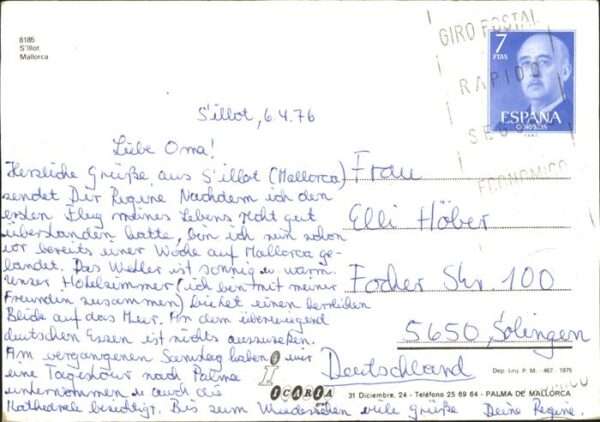 8185
S'Illot
Mallorca
GIRO POSTAL
RAPIDO
SEG
ECONOMICO
7
PTAS
ESPAÑA
CORREOS
S'illot, 6.4.76
Liebe Oma!
Herzliche Grüße aus S'illot (Mallorca)
sendet Dir Regine. Nachdem ich den
ersten Flug meines Lebens recht gut
überstanden hatte, bin ich nun schon
vor bereits einer Woche auf Mallorca ge-
landet. Das Wetter ist sonnig u. warm.
Unser Hotelzimmer (ich bin mit meiner
Freundin zusammen) bietet einen herrlichen
Blick auf das Meer. An dem überwiegend
deutschen Essen ist nichts auszusetzen.
Am vergangenen Samstag haben wir
eine Tagestour nach Palma
unternommen u. auch die
Kathedrale besichtigt. Bis zum Wiedersehen viele Grüße Deine Regine.
Frau
Elli Höber
Focher Str. 100
5650 Solingen
Deutschland
Dep. Leg. P. M. 467 - 1975
ICARIA
31 Diciembre, 24 - Teléfono 25 69 64 - PALMA DE MALLORCA